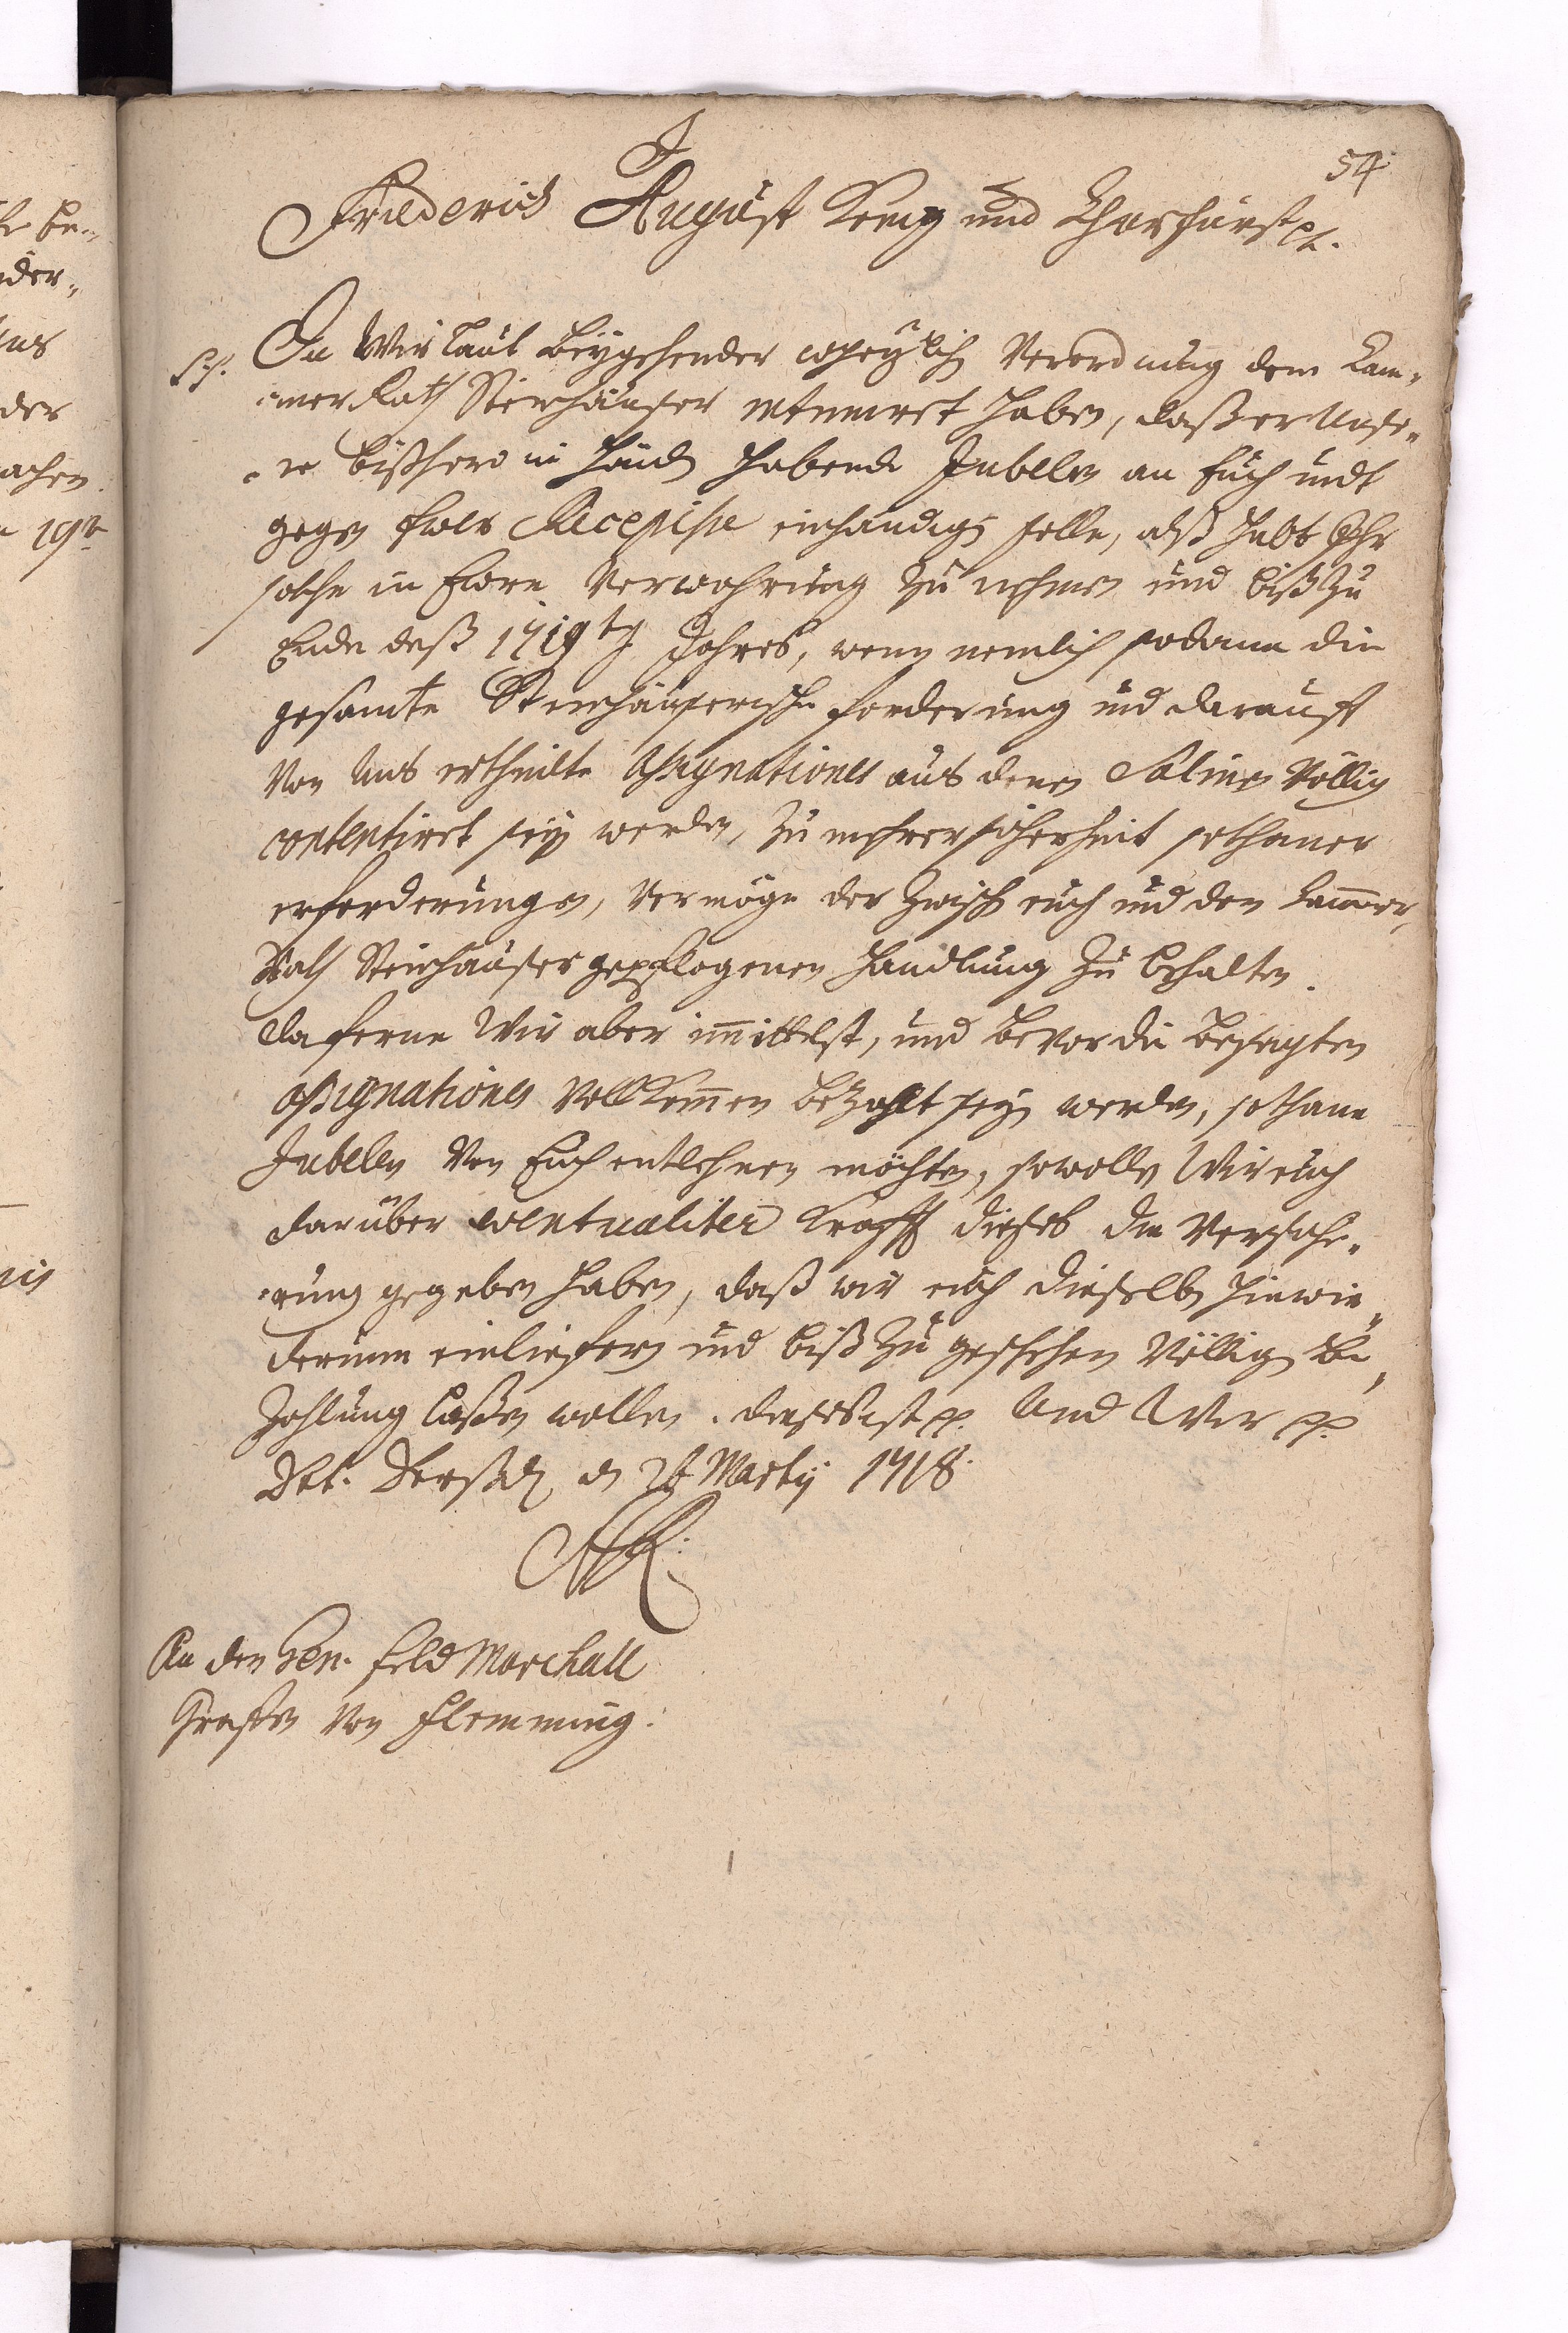 54
Friederich August König und Churfürst pt.
P. P. Da Wir laut beygehender Verordnung dem Cam„
„mer Rath Steinhäuser intimiret haben, daß er Unse„
„re bißhero in Händen habende Jubelen an Euch undt
gegen Eur Recepisse einhändigen solle, alß habt Ihr
solche in Eure Verwahrung zu nehmen und biß zu
Ende deß 1719ten Jahres, wenn nemlich sodann die
gesamte Steinhäuserische forderung und darauff
von Uns ertheilte assignationes aus denen Salinen völlig
contentiret seyn werden, zu mehrer sicherheit sothaner
erforderungen, vermöge der zwisch euch und den Cammer„
Rath Steinhäuser gepflogenen Handlung zu behalten.
Daferne Wir aber im̄ittelst, und bevor die besagten
assignationes vollkom̄en bezahlt seyn werden, sothane
Jubelen von Euch entlehnen möchten, so wollen Wir euch
darüber eventualiter krafft dieses die Versiche„
„rung gegeben haben, daß wir euch dieselben hinwie„
derumm einliefern und biß zu geschehen völligen Be„
zahlung laßen wollen. Dieses ist pp. Und Wir pp.
Dat: Dreßden den Martij 1718.
AR.
An den Gen. feld Marchall
Graffen von Flemming.
der„
der
achen
19t